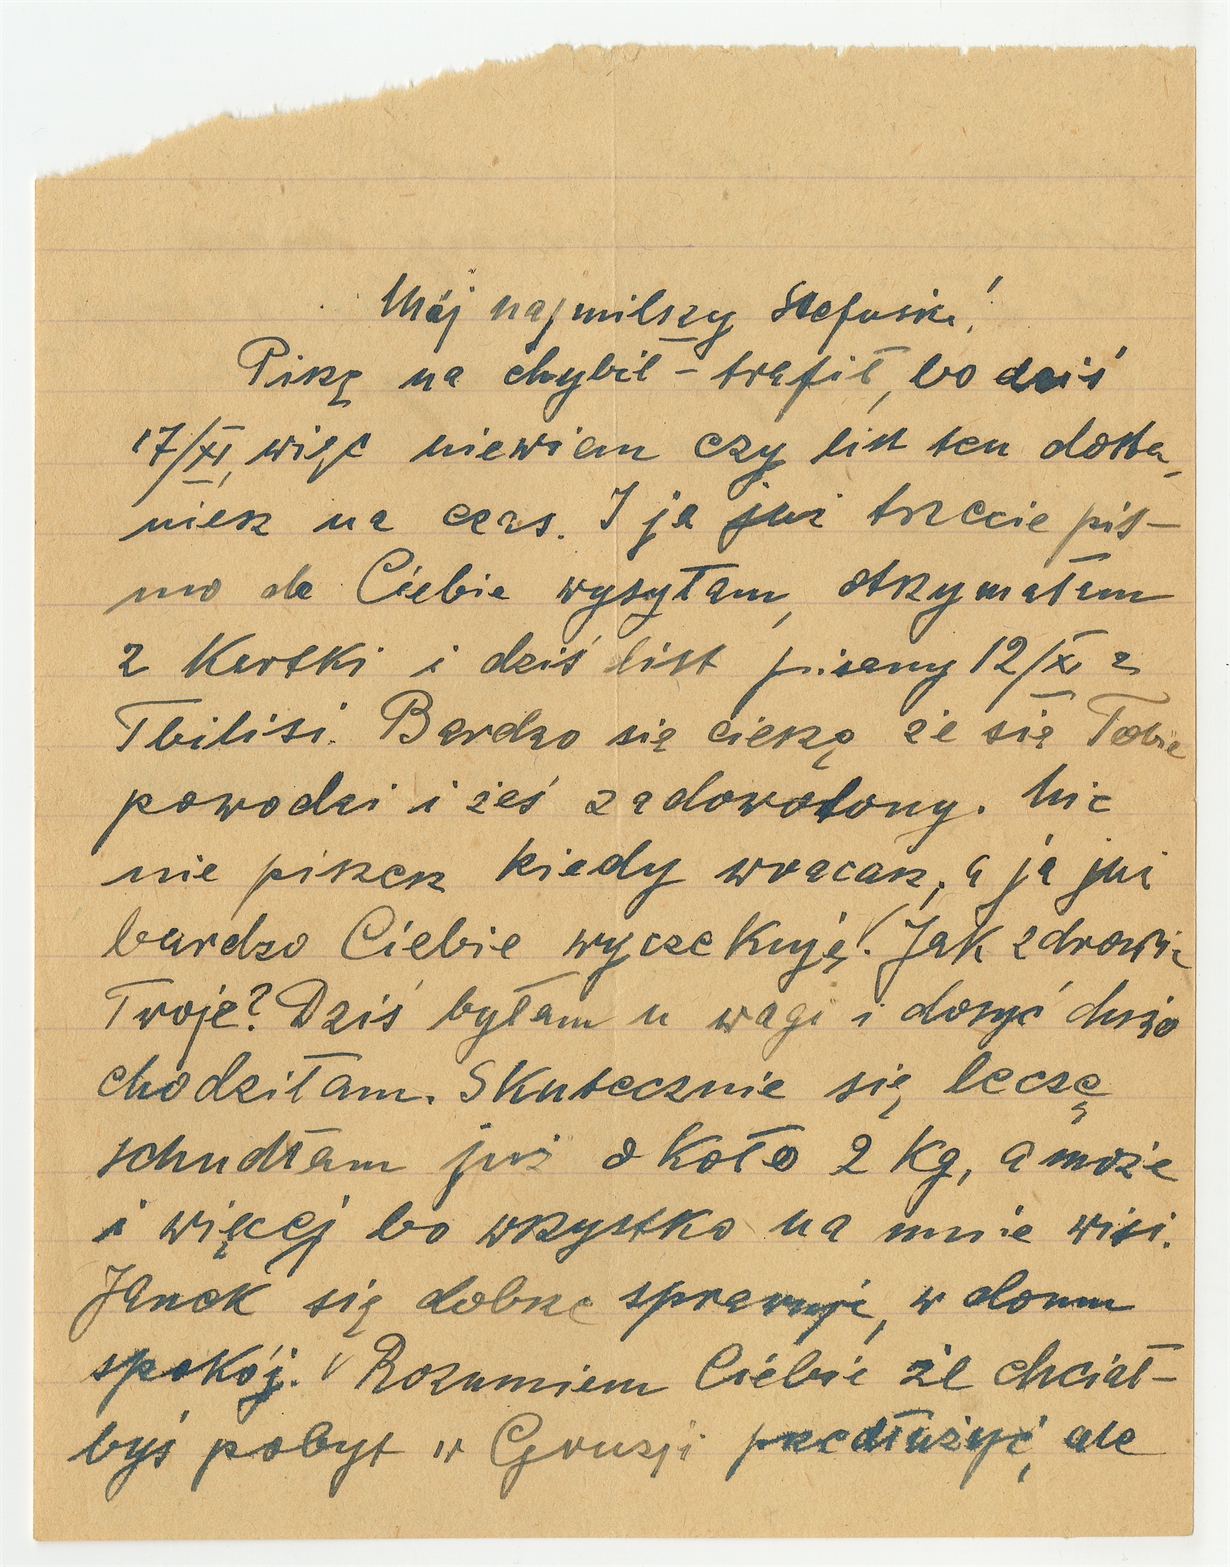 Mój najmilszy Stefusiu!
Piszę na chybił – trafił, bo dziś
17/XI, więc niewiem czy list ten dosta
niesz na czas. I ja już trzecie pis-
mo do Ciebie wysyłam, otrzymałam
2 kartki i dziś list pisany 12/XI z
Tbilisi. Bardzo się cieszę że się Tobie
powodzi i żeś zadowolony. Nic
nie piszesz kiedy wracasz, a ja już
bardzo Ciebie wyczekuję! Jak zdrowie
Twoje? Dziś byłam u wagi i dosyć dużo
chodziłam. Skutecznie się leczę
schudłam już około 2 kg, a może
i więcej bo wszystko na mnie wisi.
Janek się dobrze sprawuje, w domu
spokój. Rozumiem Ciebie że chciał-
byś pobyt w Gruzji przedłużyć, ale